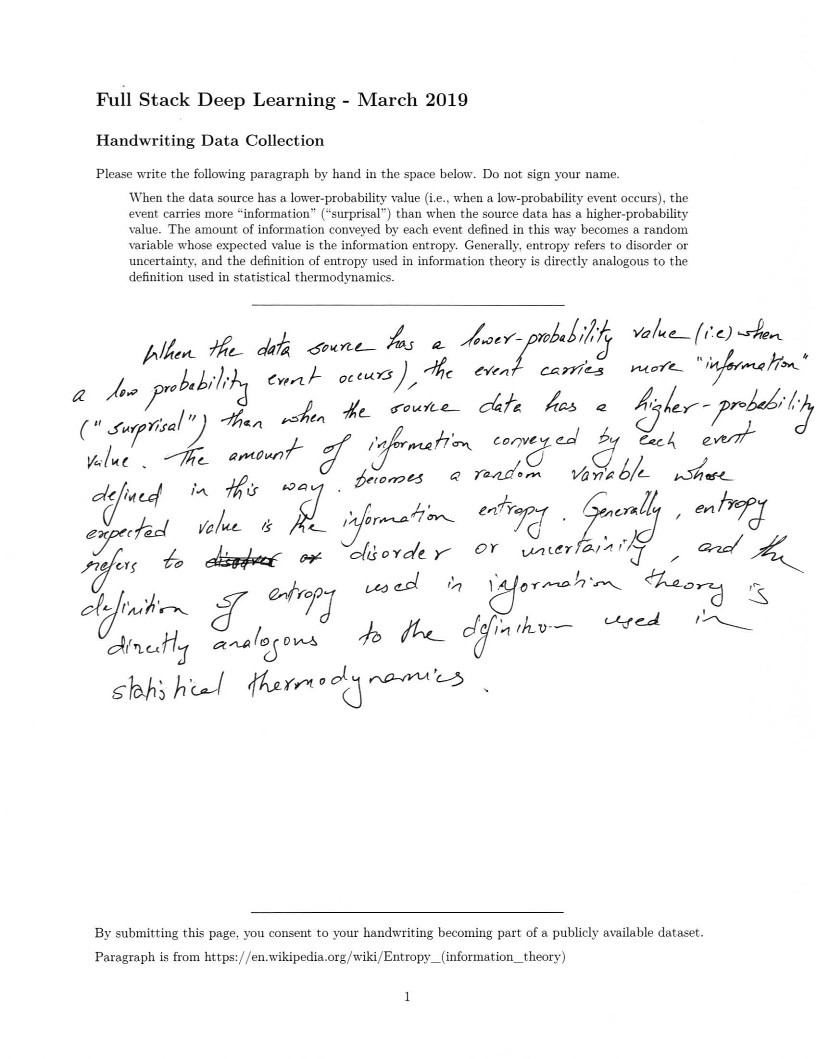 Full Stack Deep Learning - March 2019
Handwriting Data Collection
Please write the following paragraph by hand in the space below. Do not sign your name.
When the data source has a lower-probability value (i.e., when a low-probability event occurs), the
event carries more “information” (“surprisal”) than when the source data has a higher-probability
value. The amount of information conveyed by each event defined in this way becomes a random
variable whose expected value is the information entropy. Generally, entropy refers to disorder or
uncertainty, and the definition of entropy used in information theory is directly analogous to the
definition used in statistical thermodynamics.
When the data source has a lower-probability value (i.e) when
a low probability event occurs), the event carries more "information"
("surprisal") than when the source data has a higher-probability
value. The amount of information conveyed by each event
defined in this way. becomes a random variable whose
expected value is the information entropy. Generally, entropy
refers to disorder or uncertainity, and the
definition of entropy used in information theory is
directly analogous to the definition used in
statistical thermodynamics.
By submitting this page, you consent to your handwriting becoming part of a publicly available dataset.
Paragraph is from https://en.wikipedia.org/wiki/Entropy_(information_theory)
1